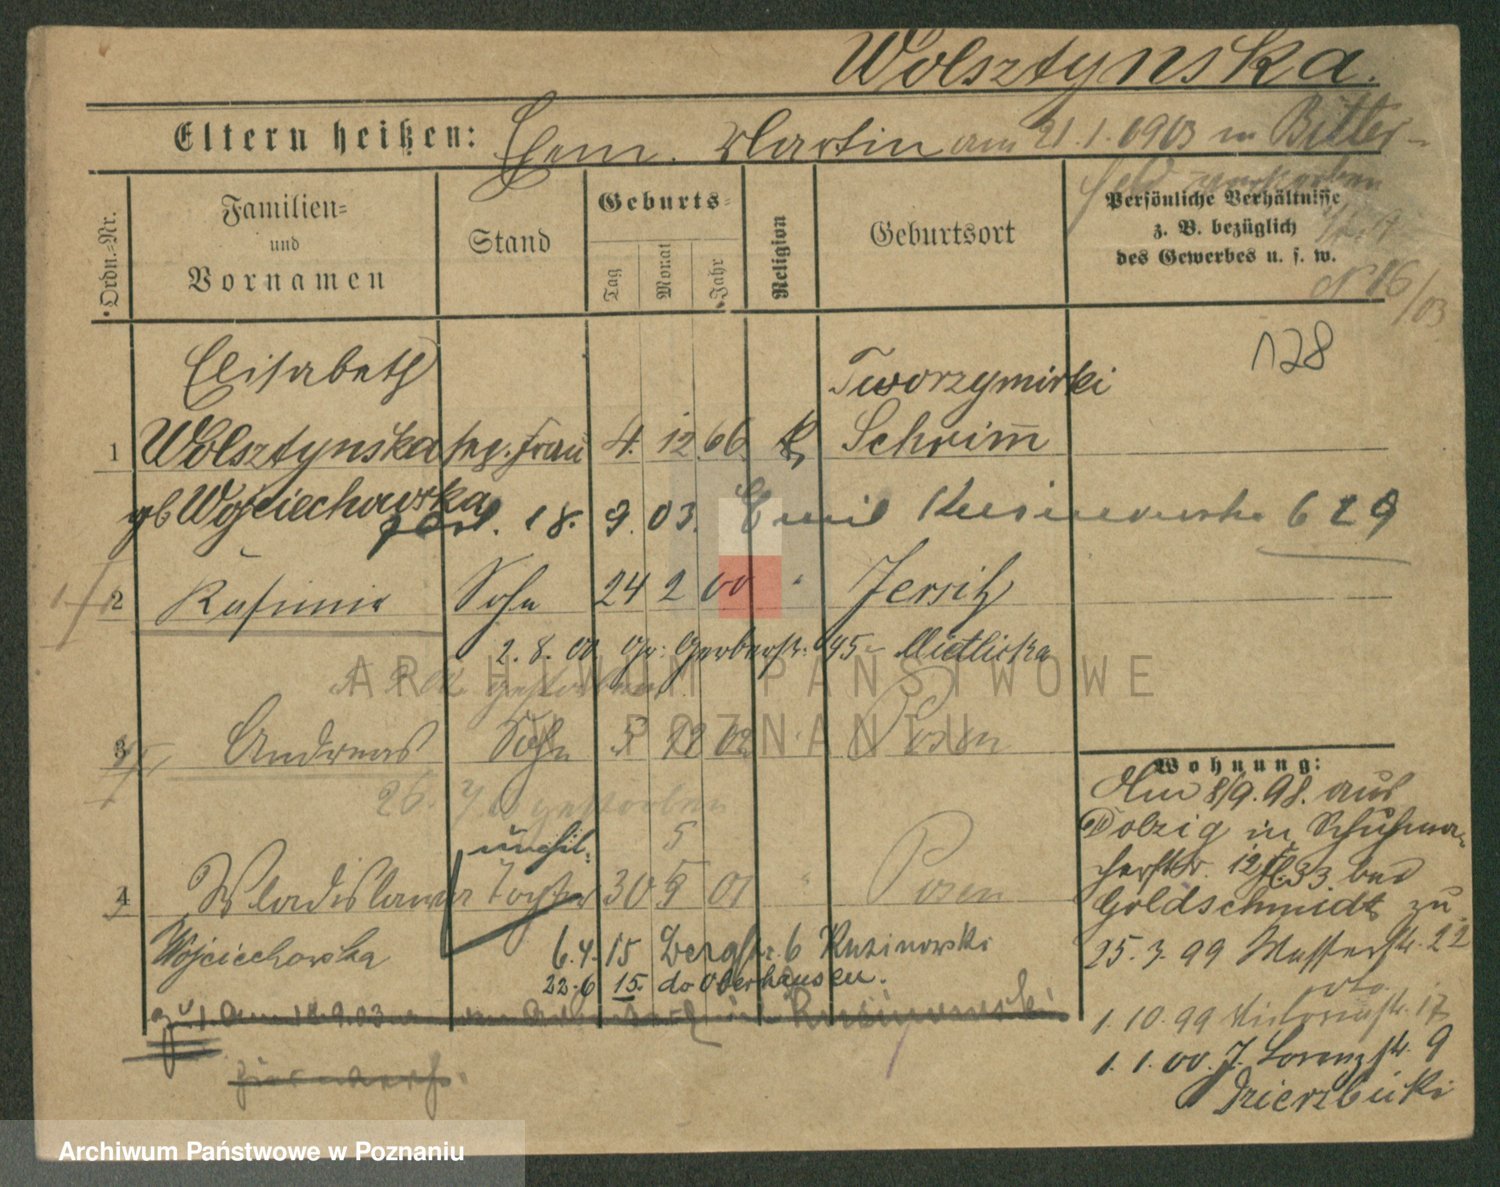 Wolsztynska.
Eltern heißen: Ehem. Martin am 21.1.1903 in Bitter-
feld verstorben
Ordn.-Nr.
Familien-
und
Vornamen
Stand
Geburts-
Tag
Monat
Jahr
Religion
Geburtsort
Persönliche Verhältnisse
z. B. bezüglich
des Gewerbes u. s. w.
N 86/03
128
Elisabeth Tworzymirki
1 Wolsztynska Frau 4. 12 66 k Schrimm
gb Wojciechowska
gesch. 18. 9. 03. Emil 629
2 Kasimir Sohn 24 2 00 " Jersitz
2. 8. 00 Gr: Gerberstr: 45 - Mietlicka
gestorben
3 Andreas Sohn 12 02 " Posen
26. gestorben
unehel: 5
4 Wladislawa Tochter 30 5 01 " Posen
Wojciechowska 6.4.15 Bergstr. 6 Rusinowski
22.6 15. do Oberhausen.
zu 1. Am 18.9.03
Wohnung:
Am 8/9.98. aus
Dolzig in Schuhma-
cherstr. 12 bei
Goldschmidt zu.
25.3.99 Wasserstr. 22
1.10.99 Victoriastr. 17
1.1.00. J. Lorenzstr. 9
Dzierzbicki
ARCHIWUM PAŃSTWOWE
W POZNANIU
Archiwum Państwowe w Poznaniu